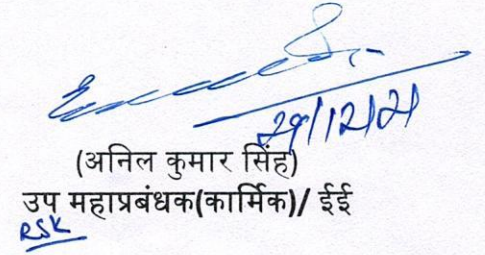 29/12/21
(अनिल कुमार सिंह)
उप महाप्रबंधक(कार्मिक)/ ईई
RSK